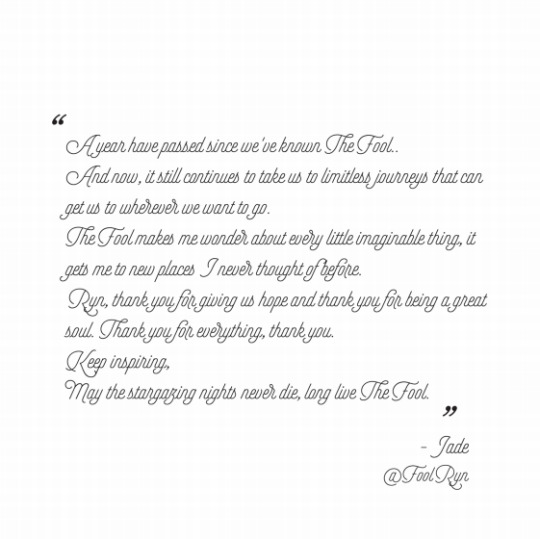 “
A year have passed since we've known The Fool..
And now, it still continues to take us to limitless journeys that can
get us to wherever we want to go.
The Fool makes me wonder about every little imaginable thing, it
gets me to new places I never thought of before.
Ryn, thank you for giving us hope and thank you for being a great
soul. Thank you for everything, thank you.
Keep inspiring,
May the stargazing nights never die, long live The Fool.
”
- Jade
@FoolRyn